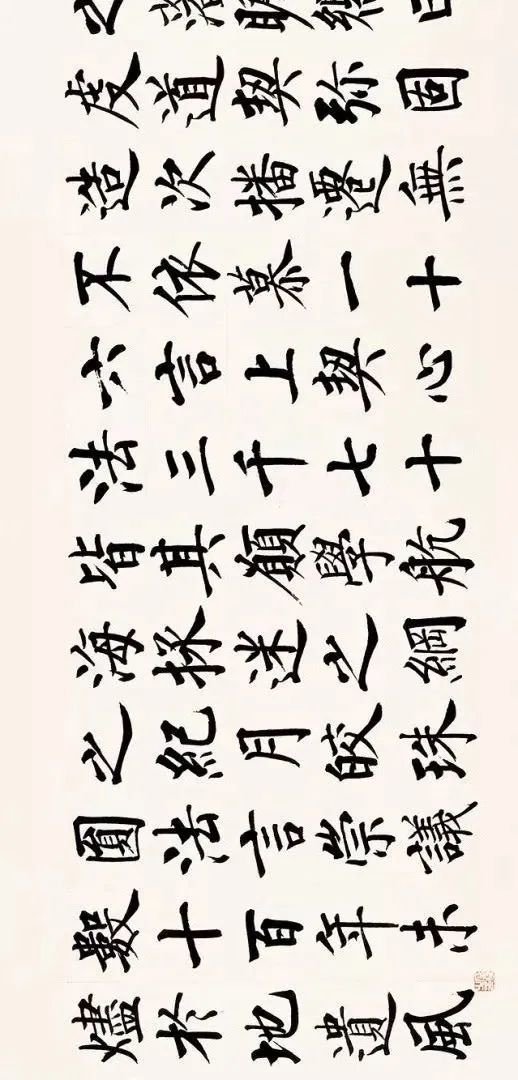 度道契弥固
造次播遷無
不依慕一十
六言上契心
法三千七十
皆其願學航
海採迷之綱
之紀月皎珠
圓法言崇議
數十百年未
燼於地遺風